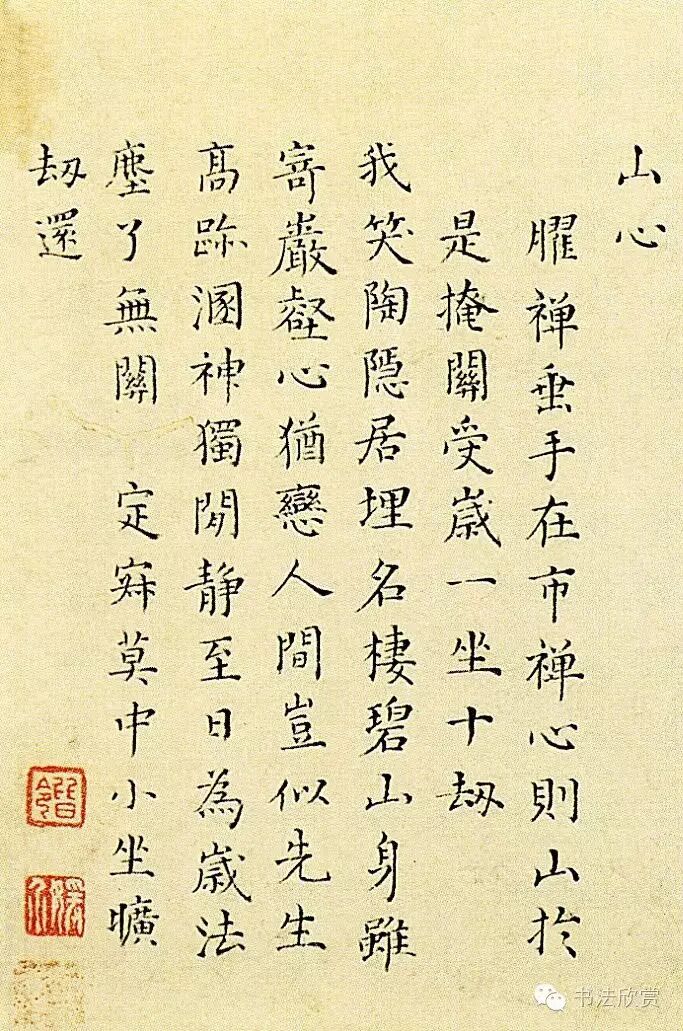 山心
臞禅垂手在市禅心則山扵
是掩關受嵗一坐十刼
我笑陶隱居埋名棲碧山身雖
寄巖壑心猶戀人間豈似先生
髙跡溷神獨閒靜至日為嵗法
塵了無關 定寂莫中小坐曠
刼還
书法欣赏